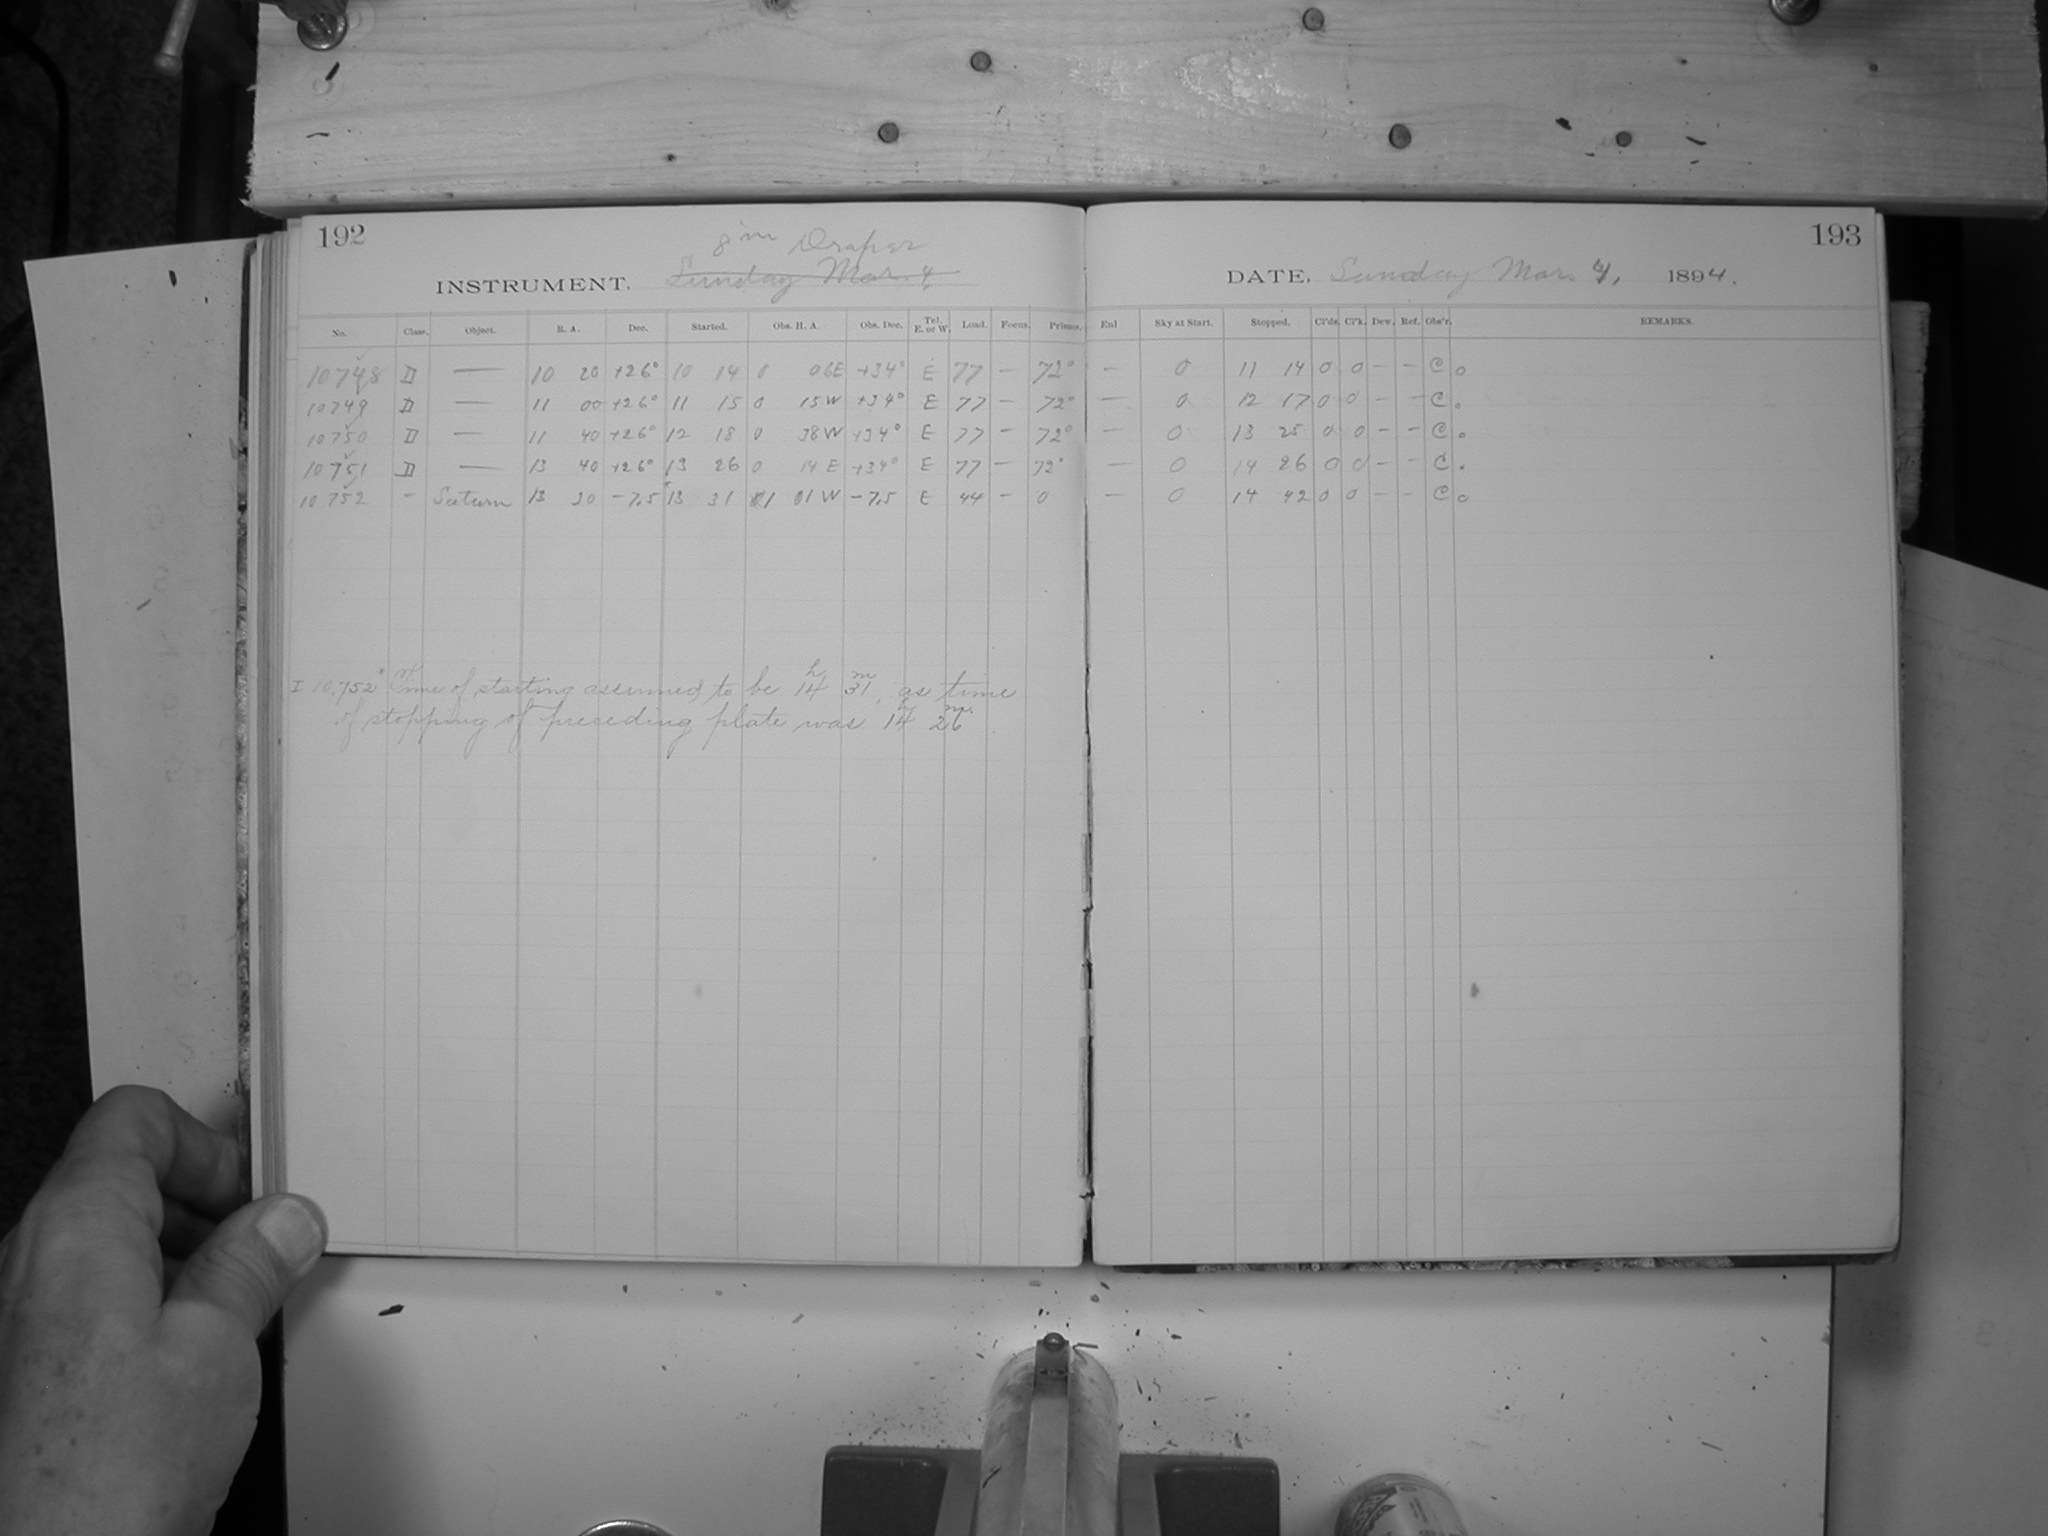 192
8 in Draper
INSTRUMENT. Sunday Mar. 4
193
DATE, Sunday Mar. 4, 1894.
No. Class. Object. R. A. Dec. Started. Obs. H. A. Obs. Dec. Tel. E. or W. Load. Focus. Prisms. Enl Sky at Start. Stopped. Cl'ds. Cl'k. Dew. Ref. Obs'r. REMARKS.
10748 D — 10 20 +26° 10 14 0 06E +34° E 77 — 72° — 0 11 14 0 0 — — C.
10749 D — 11 00 +26° 11 15 0 15W +34° E 77 — 72° — 0 12 17 0 0 — — C.
10750 D — 11 40 +26° 12 18 0 38W +34° E 77 — 72° — 0 13 25 0 0 — — C.
10751 D — 13 40 +26° 13 26 0 14E +34° E 77 — 72° — 0 14 26 0 0 — — C.
10752 – Saturn 13 20 –7.5 13 31 01 01W –7.5 E 44 — 0 — 0 14 42 0 0 — — C.
I 10,752* Time of starting assumed to be 14h 31m, as time
of stopping of preceding plate was 14h 26m.